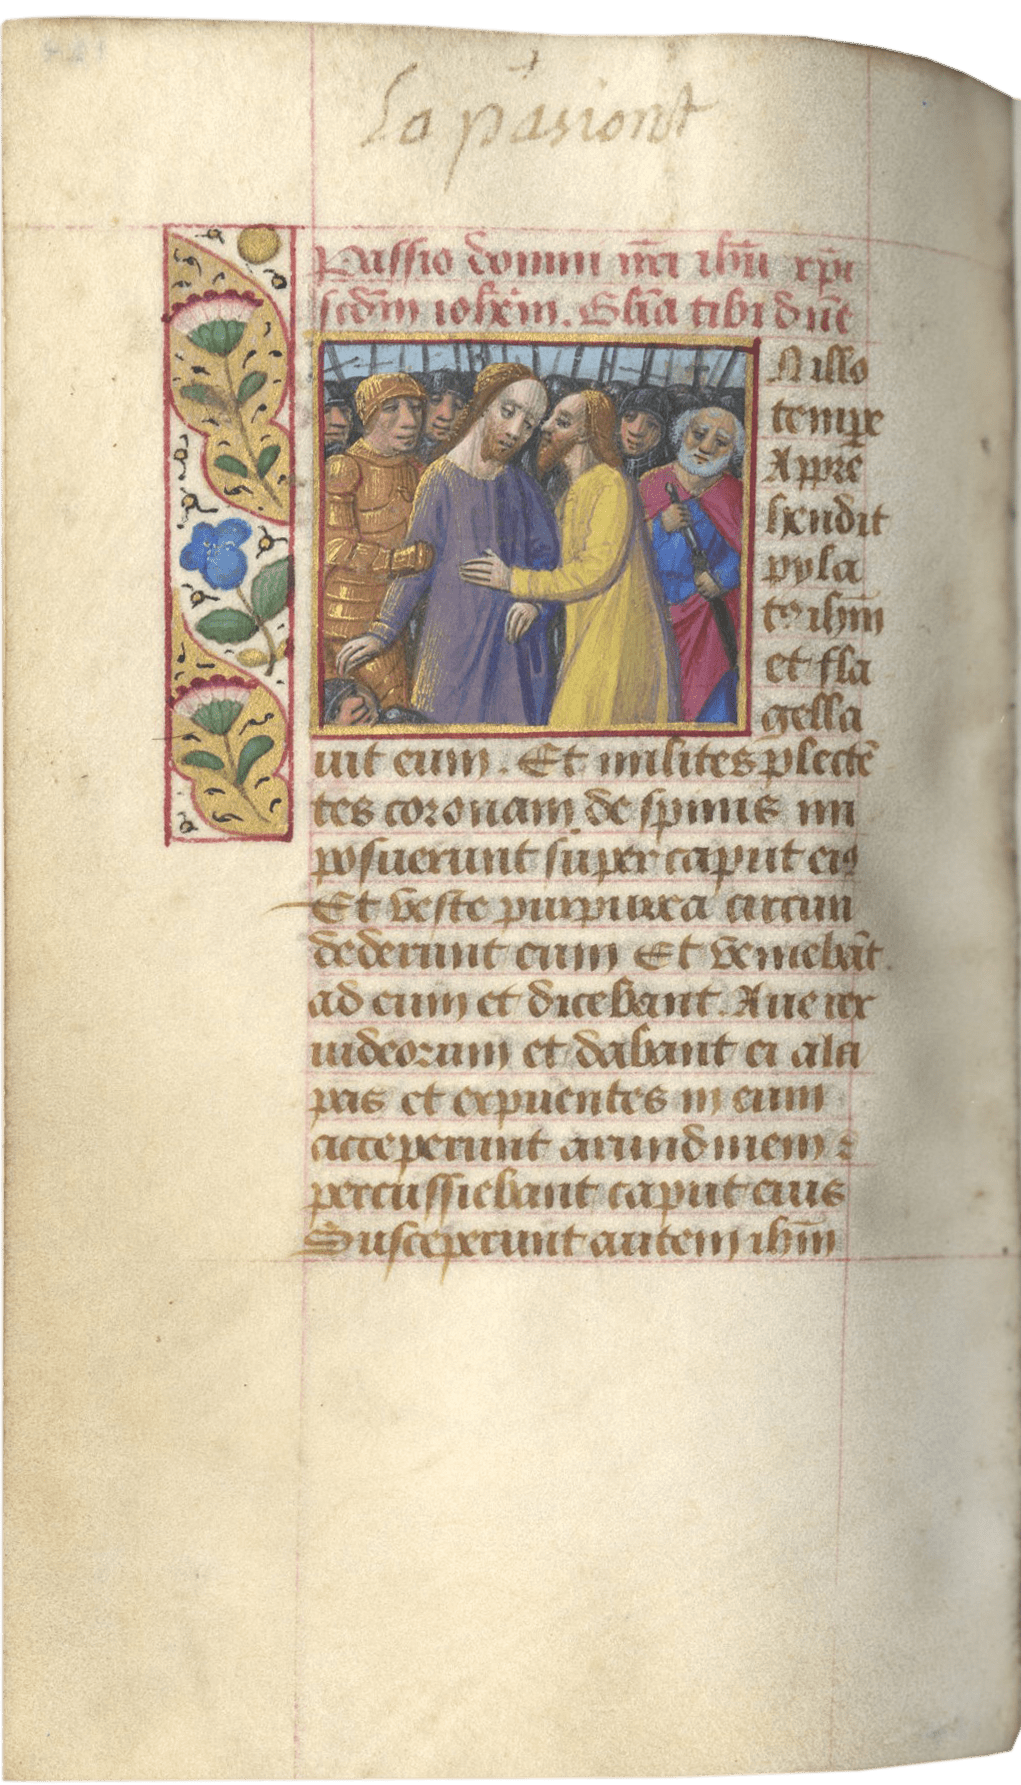 La pasiont
Passio domini nr̄i ihū xpi
scd̄m ioh̄em. Gl̄ia tibi dn̄e
N illo
temp̲re
Appre
hendit
pyla
tꝰ ihm̄
et fla
gella
uit eum. Et milites plectē
tes coronam de spinis im
posuerunt super caput eiꝰ
Et veste purpurea circun
dederunt eum Et veniebāt
ad eum et dicebant. Aue rex
iudeorum et dabant ei ala
pas et expuentes in eum
acceperunt arundinem ⁊
percussiebant caput eius
Susceperunt autem ihm̄